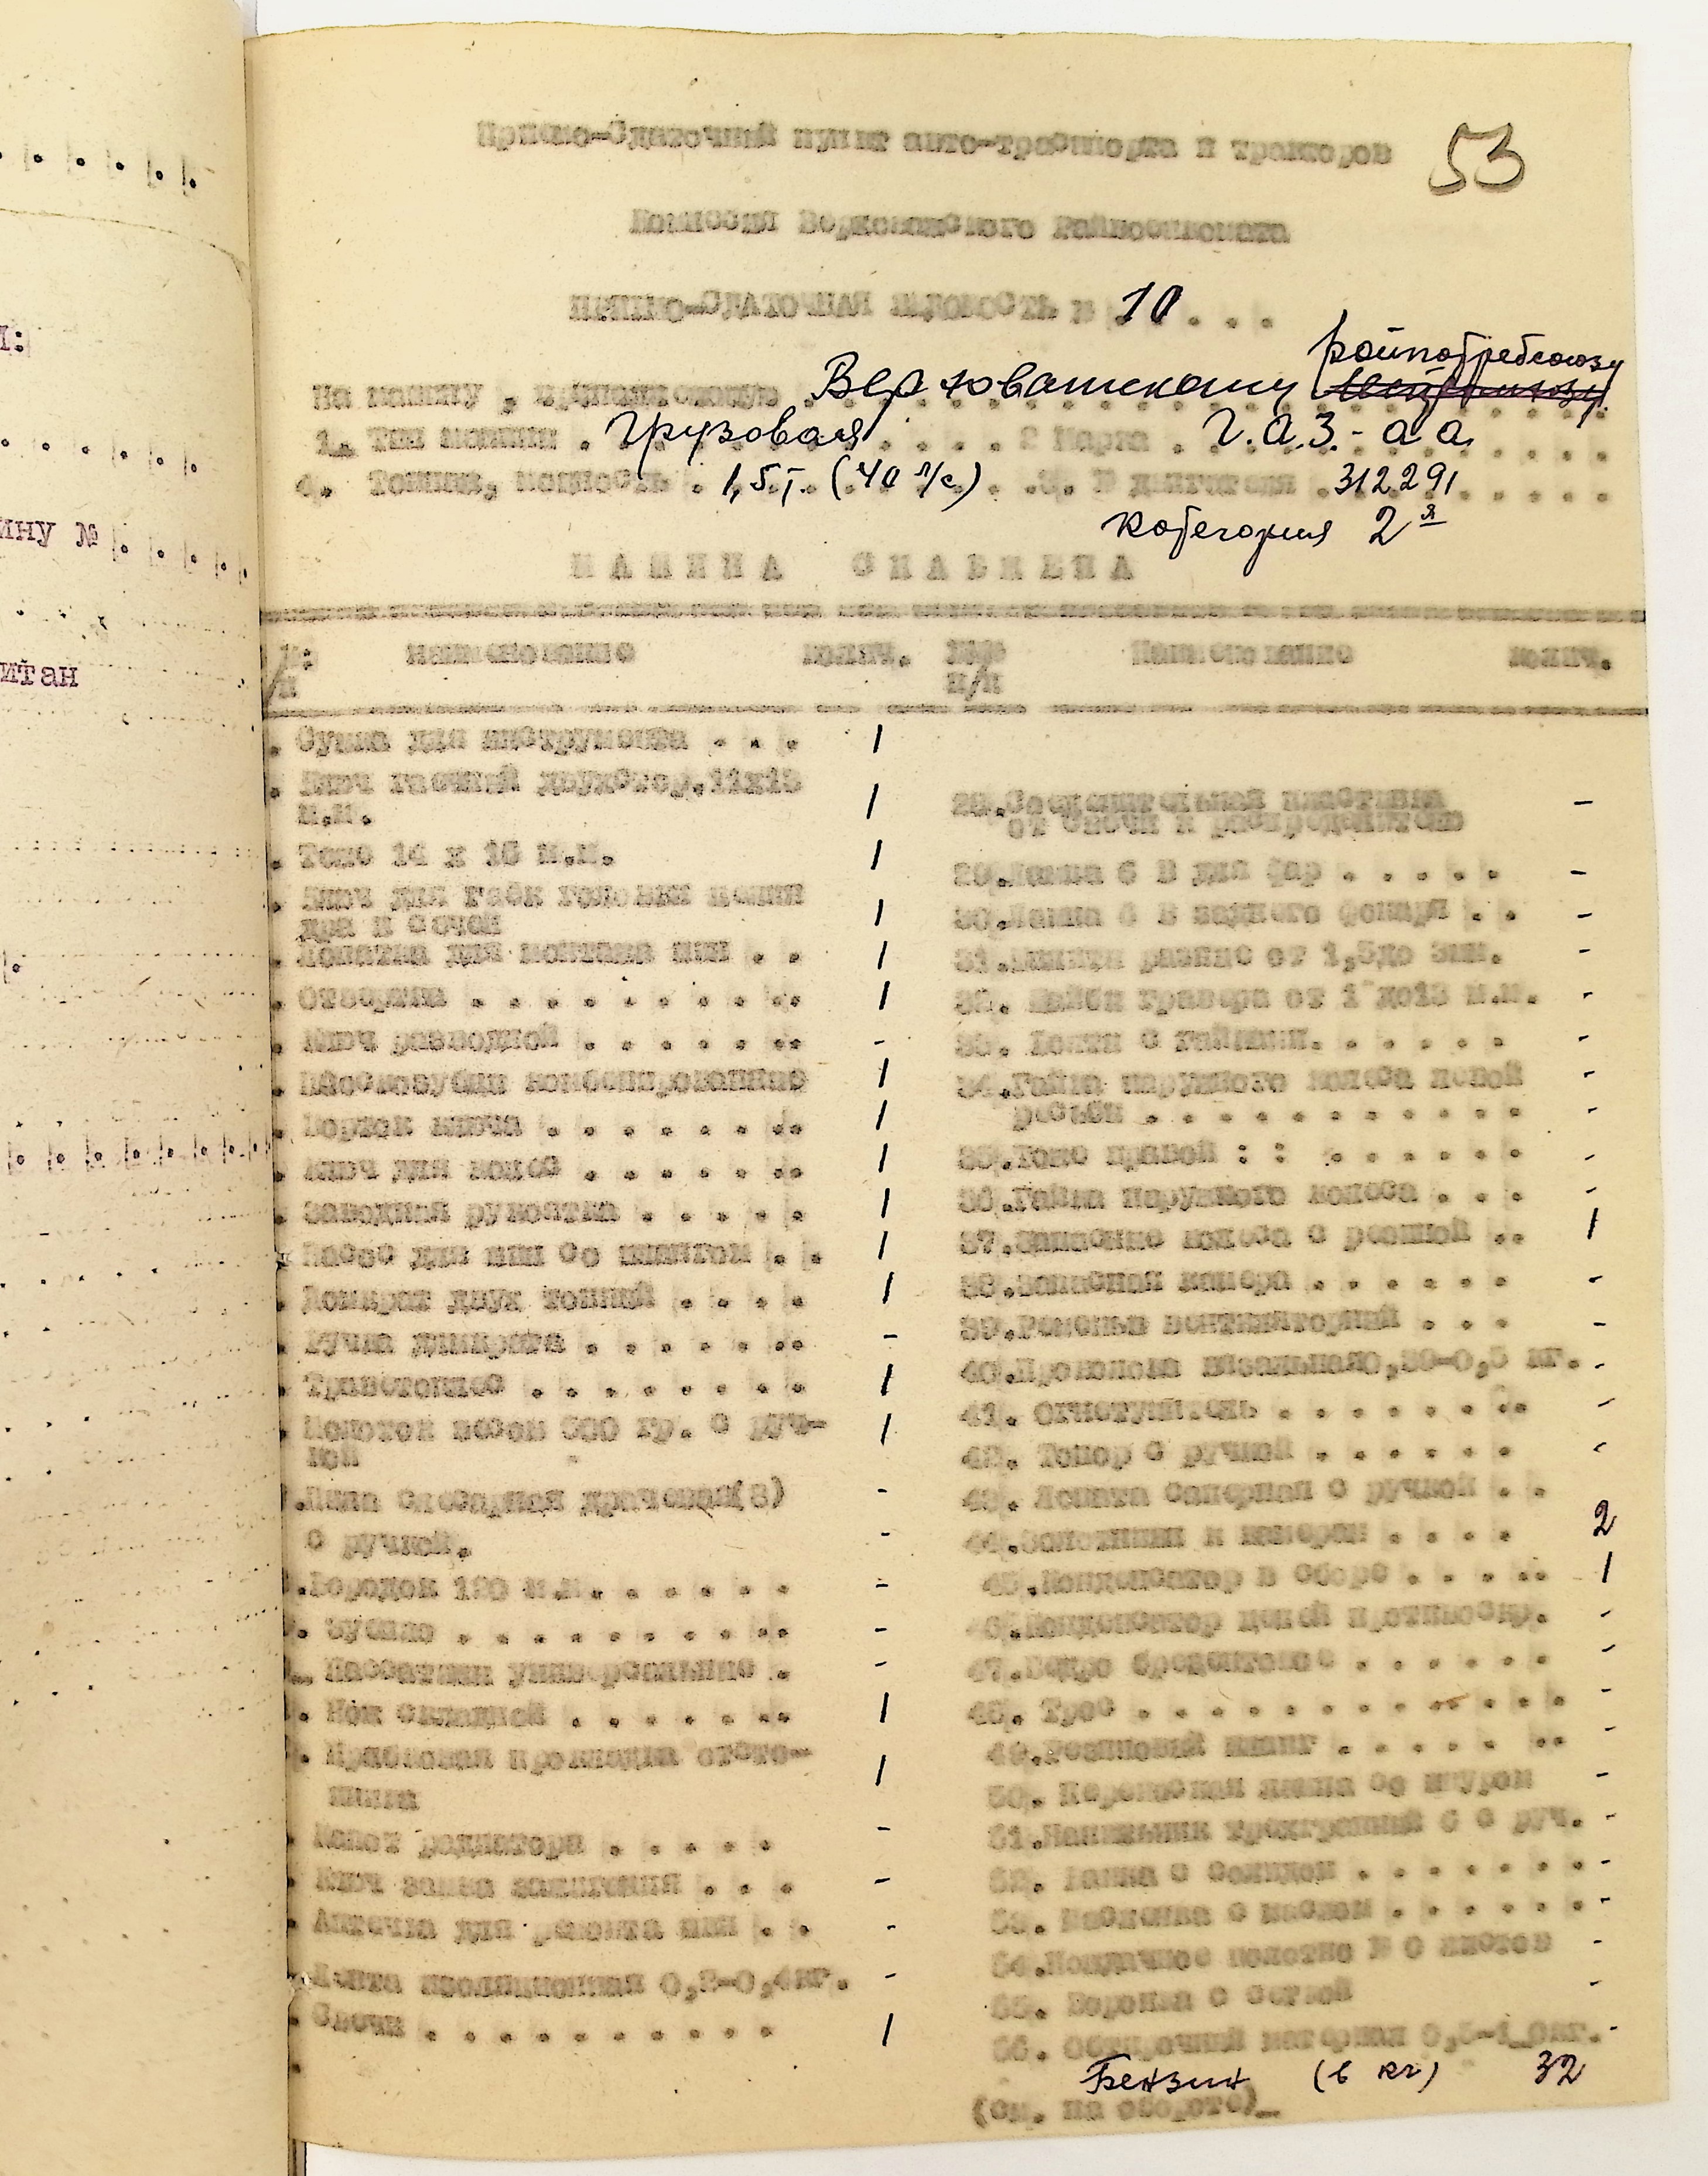 53
Приемо-Сдаточный пункт авто-транспорта и тракторов
Комиссии Верховажского Райвоенкомата
ПРИЕМО-СДАТОЧНАЯ ВЕДОМОСТЬ № 10 . . .
райпотребсоюзу
На машину , принадлежащую Верховажскому
1. Тип машины . грузовая . . . . 2 Марка . Г.А.З.- а а.
4. Тоннаж, мощность . 1,5 т. (40 л/с) . .3. № двигателя . 312291 . . . .
категория 2я
МАШИНА СНАБЖЕНА
Наименование колич. №№ Наименование колич.
п/п
. Сумка для инструмента . . . 1
. Ключ гаечный двухстор. 11х13 м.м. 1
. Тоже 14 х 16 м.м. 1
. Ключ для гаек головки цилин
дра и свечей 1
. Лопатка для монтажа шин . . 1
. Отвертка . . . . . . . . . 1
. Ключ разводной . . . . . . -
. Плоскозубцы комбинированные 1
. Вороток ключа . . . . . . . 1
. Ключ для колес . . . . . . 1
. Заводная рукоятка . . . . . 1
. Насос для шин со шлангом . . 1
. Домкрат двух тонный . . . . 1
. Ручка домкрата . . . . . . -
. Тавотонаб . . . . . . . . 1
. Молоток весом 500 гр. с руч-
кой 1
. Пила слесарная драчевая(8) -
с ручкой. -
. Бородок 120 м.м. . . . . . -
. Зубило . . . . . . . . . . -
. Пассатижи универсальные . -
. Нож складной . . . . . . . 1
. Пробковая прокладка отсто-
йника 1
. Капот радиатора . . . . . -
. Ключ замка зажигания . . . -
. Аптечка для ремонта шин . . -
. Лента изоляционная 0,2-0,4кг. -
. Свечи . . . . . . . . . . 1
28.Соединительная пластина -
от свечи к распределителю
29.Лампа 6 В для фар . . . . . -
30.Лампа 6 В заднего фонаря . . -
31.Шплинты разные от 1,5до 3мм. -
32. Шайбы гровера от 1 до13 м.м. -
33. Болты с гайками. . . . . . -
34.Гайка наружного колеса левой -
резьбы . . . . . . . . . . -
35.Тоже правой : : . . . . . . -
36.Гайка наружного колеса . . . -
37.Запасное колесо с резиной . . 1
38.Запасная камера . . . . . . -
39.Ремень вентиляторный . . . -
40.Проволока вязальная0,30-0,5 кг. -
41. Огнетушитель . . . . . . . -
42. Топор с ручкой . . . . . . -
43. Лопата саперная с ручкой . .
44.Золотники к камерам . . . . 2
45.Конденсатор в сборе . . . . 1
46.Конденсатор . -
47.Ведро брезентовое . . . . . -
48. Трос . . . . . . . . . . . -
49.Резиновый шланг . . . . . . -
50. Переносная лампа со шнуром -
51.Напильник трехгранный 6 с руч. -
52. Банка с солидом . . . . . . -
53. Масленка с маслом . . . . . -
54.Наждачное полотно № 0 листов -
55. Воронка с сеткой -
56. Обтирочный материал 0,5-1_0кг. -
Бензин (в кг) 32
(см. на обороте)_
ину №
итан